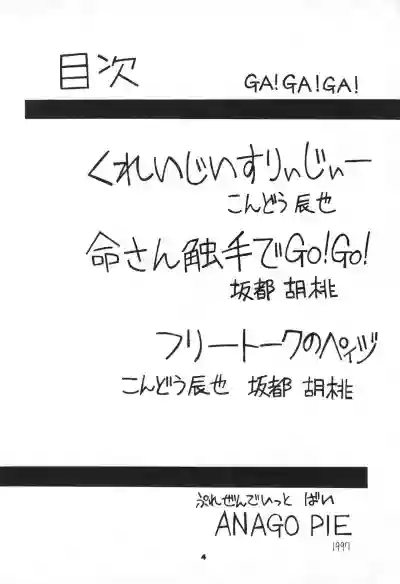 目次 GA!GA!GA!
くれいじいすりぃじぃー
こんどう辰也
命さん触手でGo!Go!
坂都 胡桃
フリートークのペイヅ
こんどう辰也 坂都 胡桃
ぷれぜんでいっと ばい
ANAGO PIE
1997
4